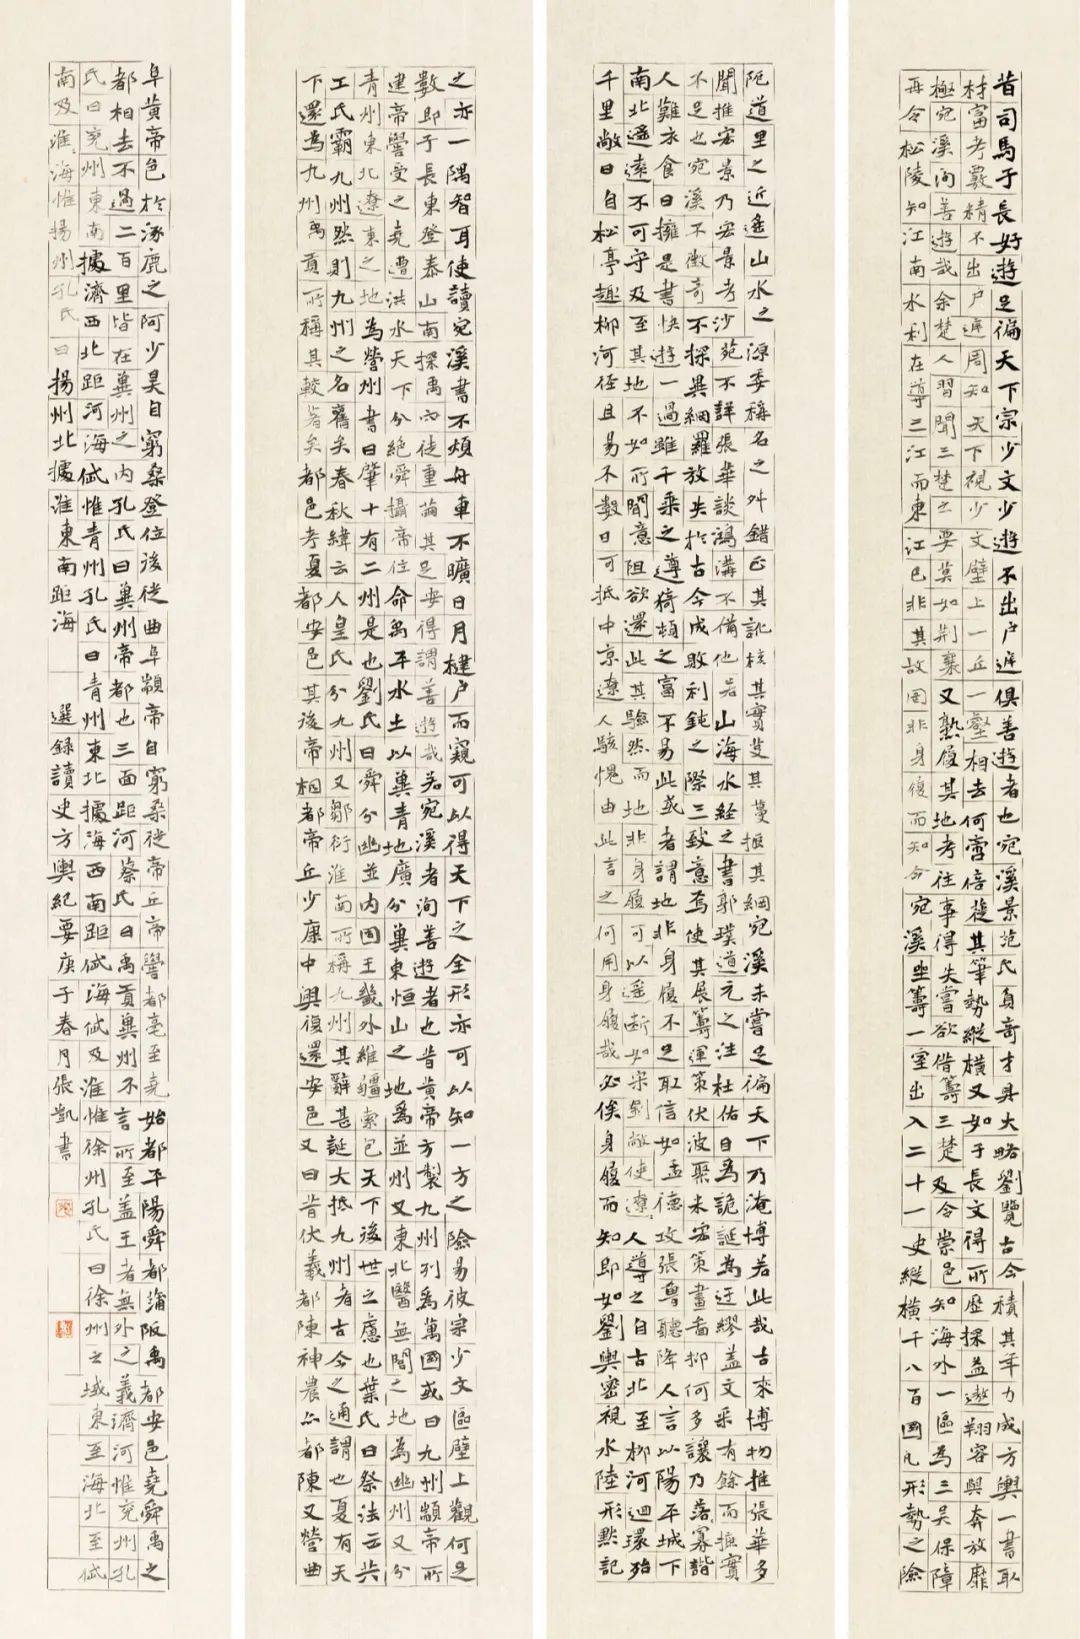 昔司馬子長好遊足徧天下宗少文少遊不出户遊俱善遊者也宛溪景范氏負奇才具大略劉覽古今積其年力成方輿一書取
材富考覈精不出户遊周知天下視少文壁上一丘一壑相去何啻倍蓰其筆勢縱橫又如子長文得所歷探益遨翔容與奔放靡
極宛溪洵善遊哉余楚人習聞三楚之要莫如荆襄又熟履其地考往事得失嘗欲借籌三楚及令崇邑知海外一區為三吴保障
再令松陵知江南水利在導三江而東江已非其故固非身履而知今宛溪坐籌一室出入二十一史縱橫千八百國凡形勢之險
阨道里之近遙山水之源委稱名之舛錯正其訛核其實芟其蔓振其綱宛溪未嘗足徧天下乃淹博若此哉古來博物推張華多
聞推宏景乃宏景考沙苑不詳張華談鴻溝不備他若山海水經之書郭璞道元之注杜佑目為詭誕為迂繆蓋文采有餘而摭實
不足也宛溪不徵奇不探異網羅放失於古今成敗利鈍之際三致意焉使其展籌運策伏波聚米宏策畫抑何多讓乃落寞諧
人難衣食日擁是書快遊一過雖千乘之尊猗頓之富不易此或者謂地非身履不足取信如孟德攻張魯聽降人言以陽平城下
南北遥遠不可守及至其地不如所聞意阻欲還此其驗然而地非身履可以遥斷如宋劉敞使遼人導之自古北至柳河迴環殆
千里敞曰自松亭趨柳河徑且易不數日可抵中京遼人駭愧由此言之何用身履哉必俟身履而知即如劉輿密視水陸形默記
之亦一隅智耳使讀宛溪書不煩舟車不曠日月楗户而窺可以得天下之全形亦可以知一方之險易彼宗少文區壁上觀何足
數即子長東登泰山南探禹穴徒重繭其足安得謂善遊哉若宛溪者洵善遊者也昔黄帝方製九州列為萬國或曰九州顓帝所
建帝嚳受之堯遭洪水天下分絕舜攝帝位命禹平水土以冀青地廣分冀東恒山之地為並州又東北醫無閭之地為幽州又分
青州東北遼東之地為營州書曰肇十有二州是也劉氏曰舜分幽並内固王畿外維疆索包天下後世之慮也葉氏曰祭法云共
工氏霸九州然則九州之名舊矣春秋緯云人皇氏分九州又鄒衍淮南所稱九州其辭甚誕大抵九州者古今之通謂也夏有天
下還為九州禹貢所稱其較著矣都邑考夏都安邑其後帝相都帝丘少康中興復還安邑又曰昔伏羲都陳神農亦都陳又營曲
阜黄帝邑於涿鹿之阿少昊自窮桑登位後徙曲阜顓帝自窮桑徙帝丘帝嚳都亳至堯始都平陽舜都蒲阪禹都安邑堯舜禹之
都相去不過二百里皆在冀州之内孔氏曰冀州帝都也三面距河蔡氏曰禹貢冀州不言所至蓋王者無外之義濟河惟兖州孔
氏曰兖州東南據濟西北距河海岱惟青州孔氏曰青州東北據海西南距岱海岱及淮惟徐州孔氏曰徐州之域東至海北至岱
南及淮淮海惟揚州孔氏曰揚州北據淮東南距海 選録讀史方輿紀要庚子春月張凱書